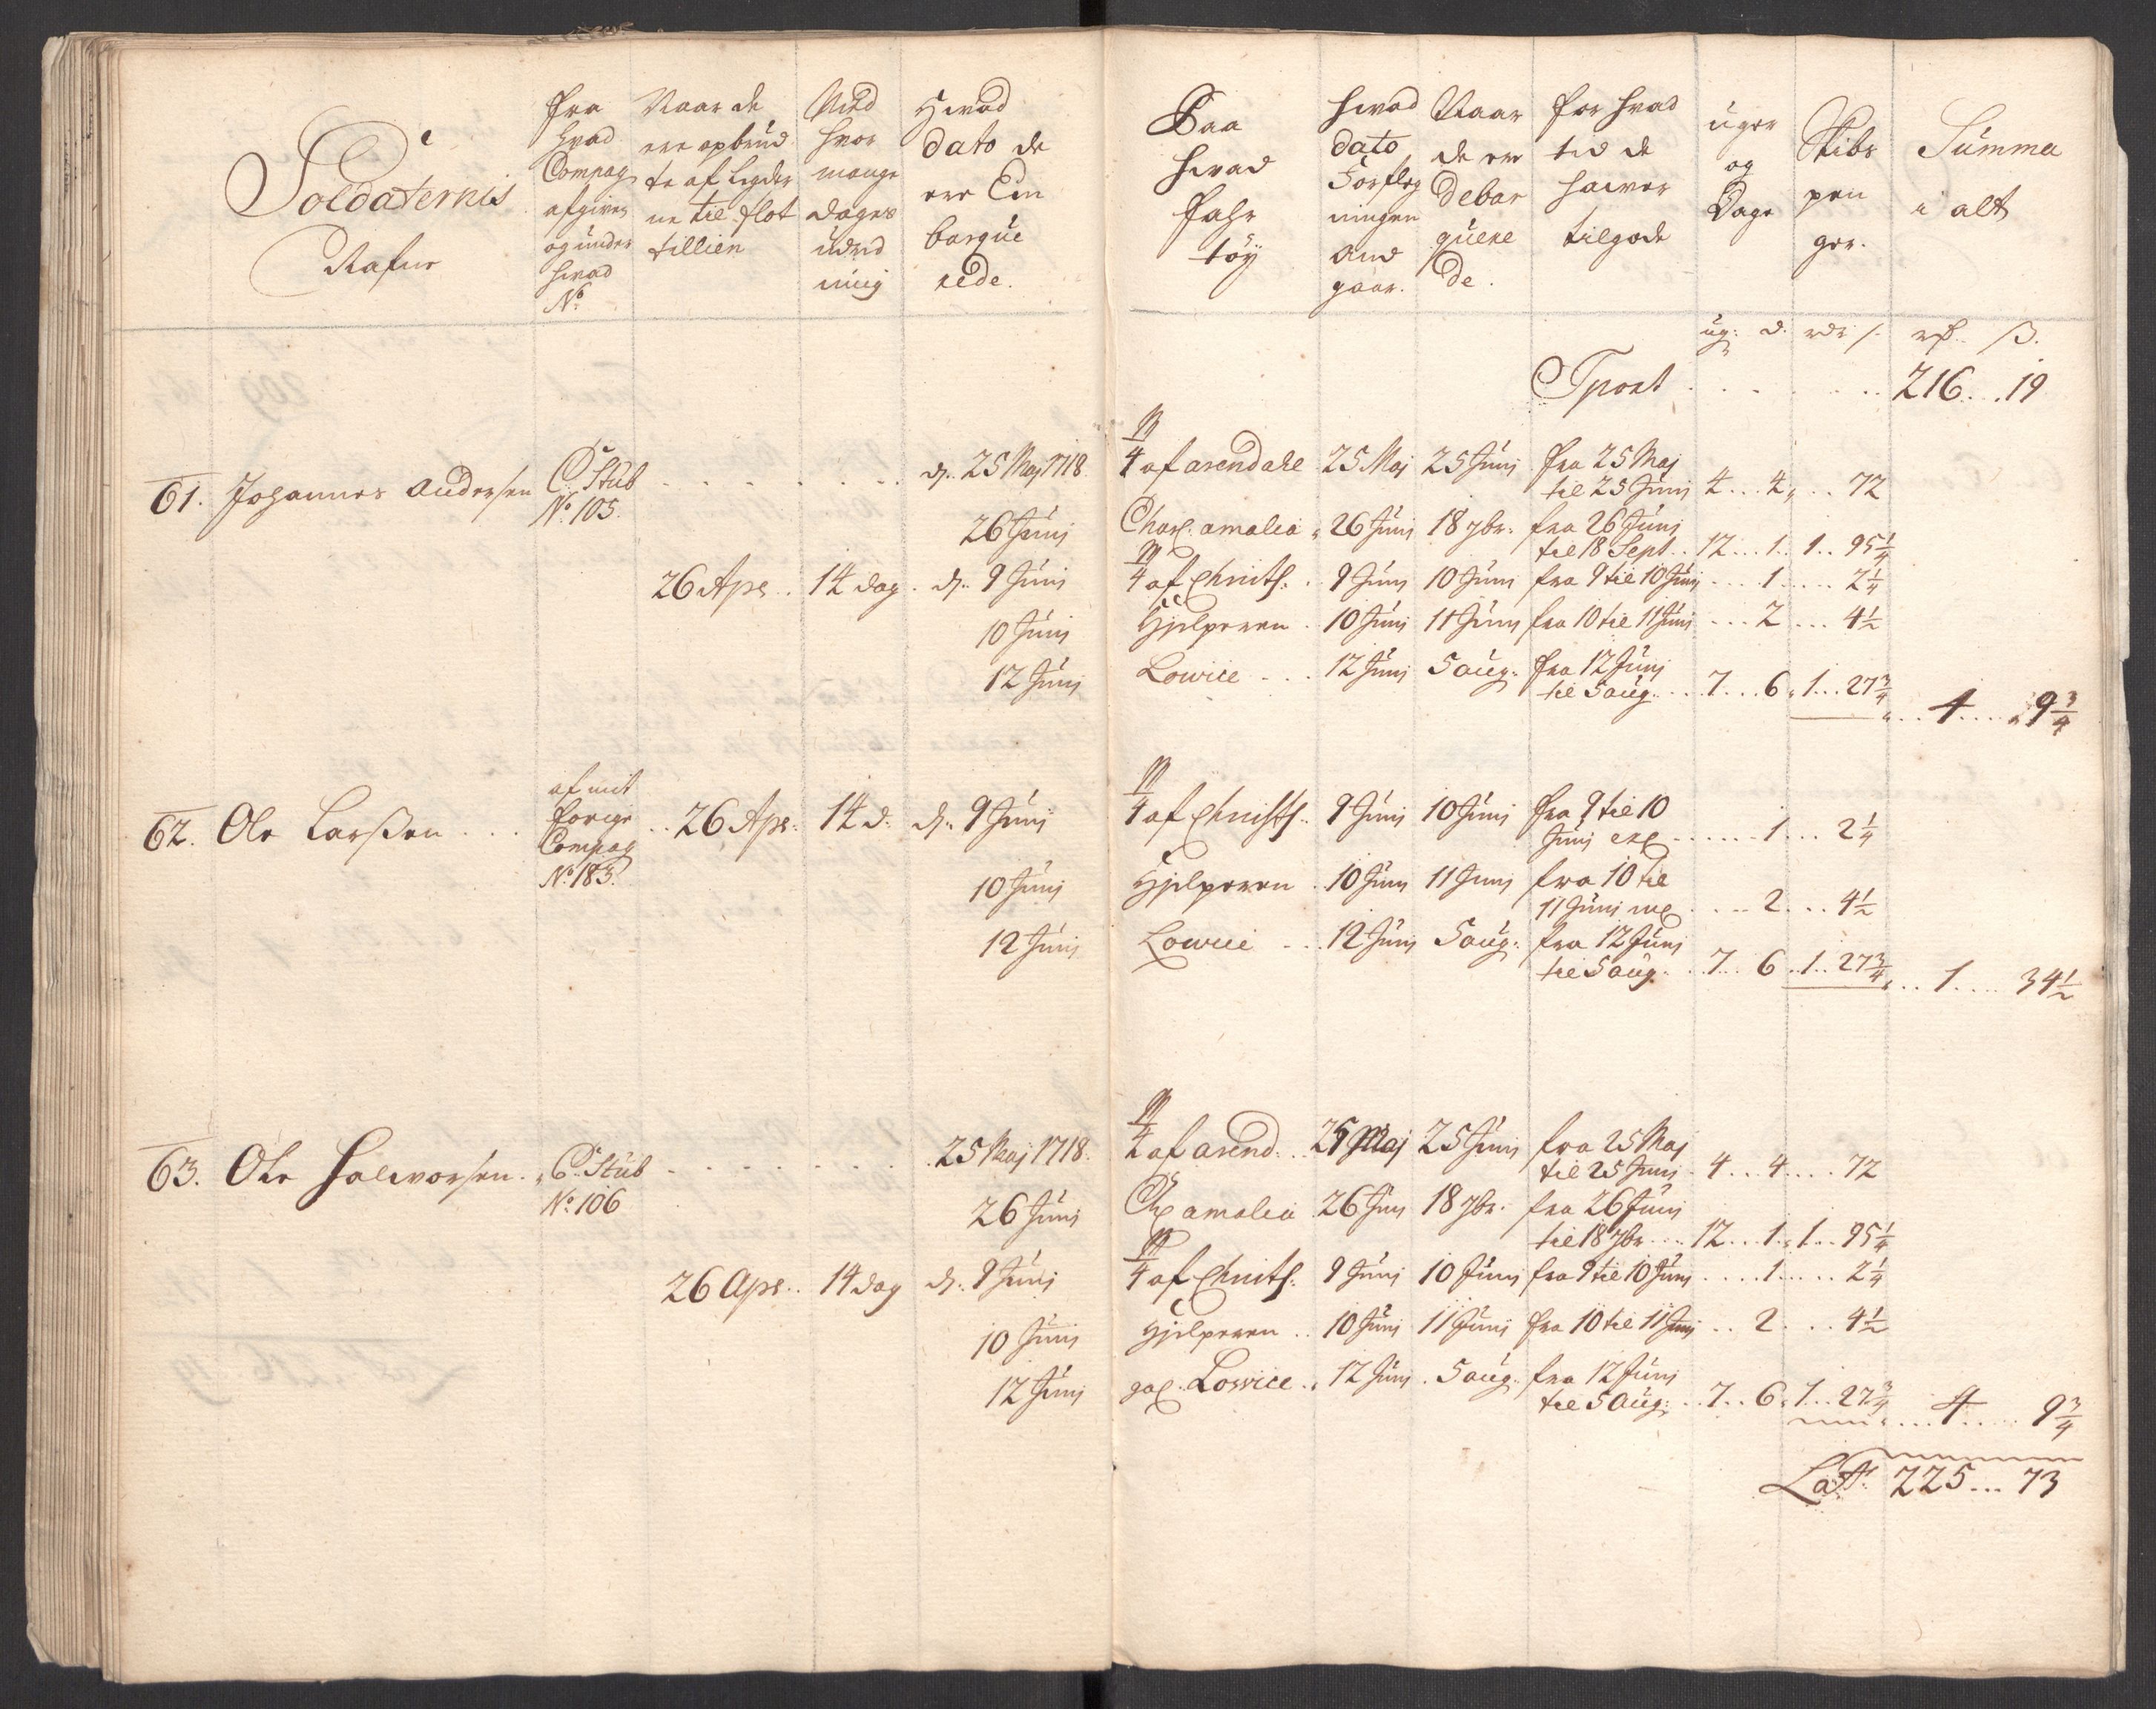 Soldaternis
Nafne
fra
hvad
Compag
afgiven
og under
hvad
No
Naar de
ere opbrud
te af Legder
ne til flot
tillien
Med
hvor
mange
dages
uded
ning
Hvad
dato de
ere Em
barque
rede.
Paa
hvad
fahr
töy
hvad
dato
Forpleg
ningen
And
gaar.
Naar
de ere
debar
quere
de.
for hvad
tid de
haver
tilgode
uger
og
Dage
Skibs
pen
ger.
Summa
i alt
ug: d. rdr s. rd. ß.
Tport . . . . . 216 . . 19
61. Johannes Andersen C: Stub . . . . . . . d. 25 Maj 1718. 4 af arendahl 25 Maj 25 Junj fra 25 Maj
No 105. til 25 Junj 4 . . 4 . . 72
26 Junj Charl. amalia 26 Junj 18 7br: fra 26 Junj
til 18 Sept . . 12 . . 1 . 1 . . 95 1/4
26 Apr. . 14 dag . d. 9 Junj 4 af Christ: . 9 Junj 10 Junj fra 9 til 10 Junj . . . 1 . . . 2 1/4
10 Junj Hjelperen . 10 Junj 11 Junj fra 10 til 11 Junj . . . 2 . . . 4 1/2
12 Junj Lowise . . . 12 Junj 5 aug. fra 12 Junj
til 5 aug. . . 7 . . 6 . 1 . . 27 3/4 . . 4 . . . 9 3/4
62. Ole Larßen . . . af mit
forige
Compag
No 183.
. . 26 Apr: 14 d: d. 9 Junj 4 af Christ: 9 Junj 10 Junj fra 9 til 10
Junj exl . . . . . 1 . . . 2 1/4
10 Junj Hjelperen . 10 Junj 11 Junj fra 10 til
11 Junj incl . . . 2 . . . 4 1/2
12 Junj Lowise . . . 12 Junj 5 aug. fra 12 Junj
til 5 aug. . . 7 . . 6 . 1 . . 27 3/4 . . 1 . . . . 34 1/2
63. Ole Halvorsen . C. Stub . . . . . . . . 25 Maj 1718. 4 af arend: . 25 Maj 25 Junj fra 25 Maj
No 106 til 25 Junj . 4 . . . 4 . . . 72
26 Junj Ch. amalia 26 Junj 18 7br. fra 26 Junj
til 18 7br . . . 12 . . 1 . 1 . . 95 1/4
26 Apr. . 14 dag d. 9 Junj 4 af Christ: 9 Junj 10 Junj fra 9 til 10 Junj . . . . 1 . . . . 2 1/4
10 Junj Hjelperen . . 10 Junj 11 Junj fra 10 til 11 Junj . . 2 . . . 4 1/2
12 Junj gal. Lowise . . 12 Junj . 5 aug. fra 12 Junj
til 5 Aug: . . 7 . . 6 . 1 . . 27 3/4 . . . 4 . . . 9 3/4
Latr. 225 . . . 73